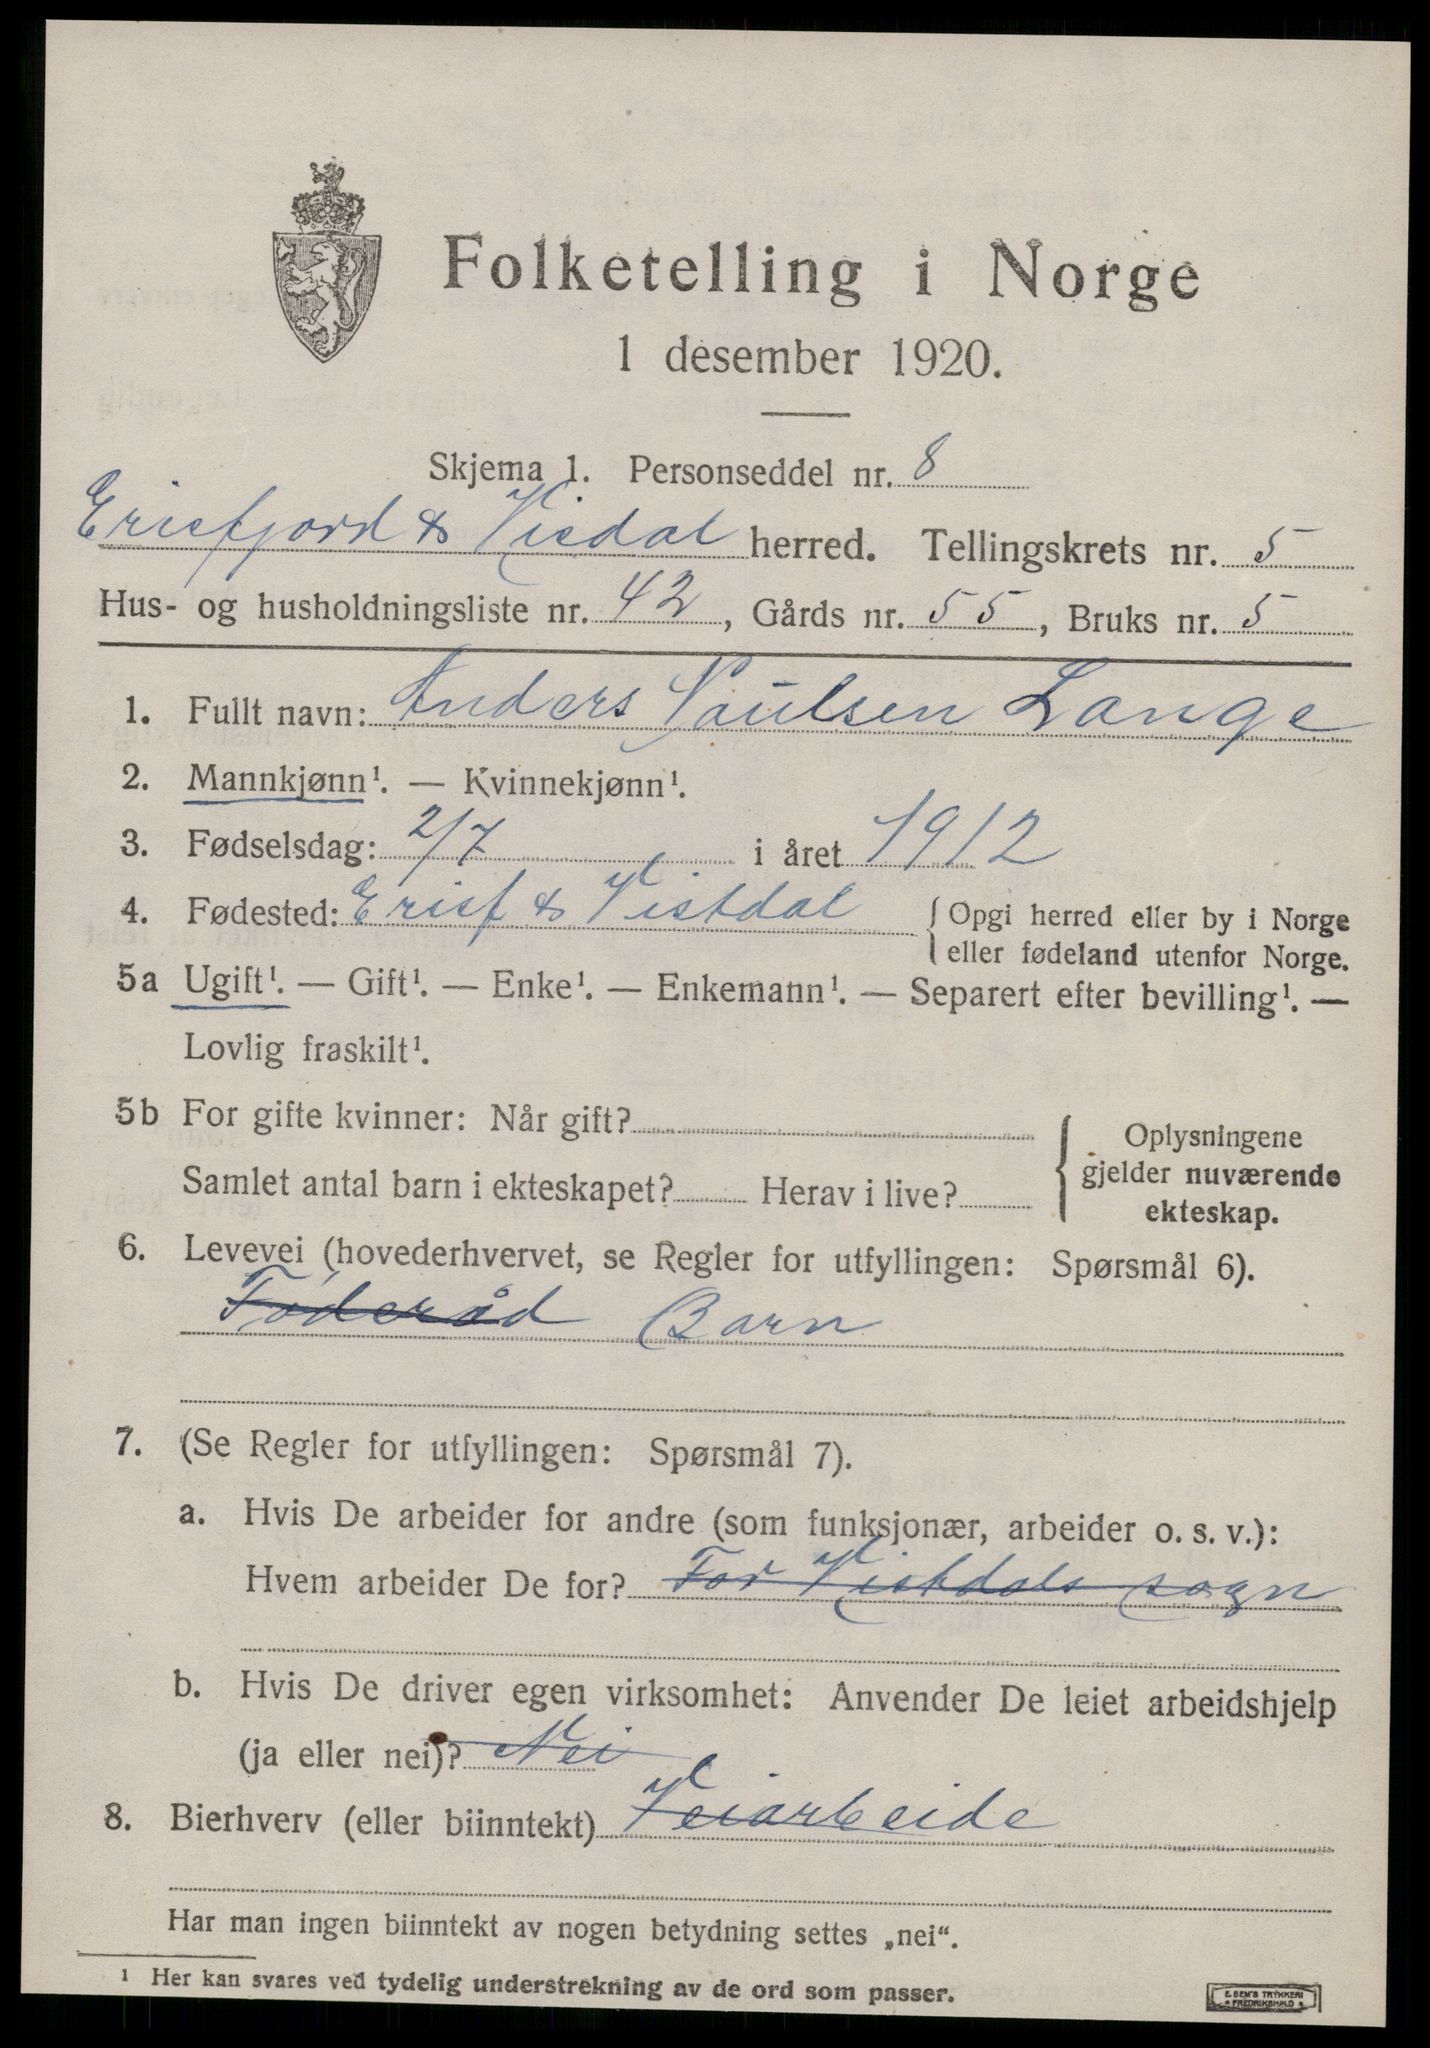 Folketelling i Norge
1 desember 1920.
Skjema 1. Personseddel nr. 8
Erisfjord & Visdal herred. Tellingskrets nr. 5
Hus- og husholdningsliste nr. 42, Gårds nr. 55, Bruks nr. 5
1. Fullt navn: Anders Paulsen Lange
2. Mannkjønn¹. — Kvinnekjønn¹.
3. Fødselsdag: 2/7 i året 1912
4. Fødested: Erisf & Vistdal { Opgi herred eller by i Norge
eller fødeland utenfor Norge.
5a Ugift¹. — Gift¹. — Enke¹. — Enkemann¹. — Separert efter bevilling¹. —
Lovlig fraskilt¹.
5b For gifte kvinner: Når gift?
Samlet antal barn i ekteskapet? Herav i live?
Oplysningene
gjelder nuværende
ekteskap.
6. Levevei (hovederhvervet, se Regler for utfyllingen: Spørsmål 6).
Føderåd Barn
7. (Se Regler for utfyllingen: Spørsmål 7).
a. Hvis De arbeider for andre (som funksjonær, arbeider o. s. v.):
Hvem arbeider De for? For Vistdals sogn
b. Hvis De driver egen virksomhet: Anvender De leiet arbeidshjelp
(ja eller nei)? Nei
8. Bierhverv (eller biinntekt) Veiarbeide
Har man ingen biinntekt av nogen betydning settes „nei“.
¹ Her kan svares ved tydelig understrekning av de ord som passer.
E. SEM'S TRYKKERI
FREDRIKSHALD